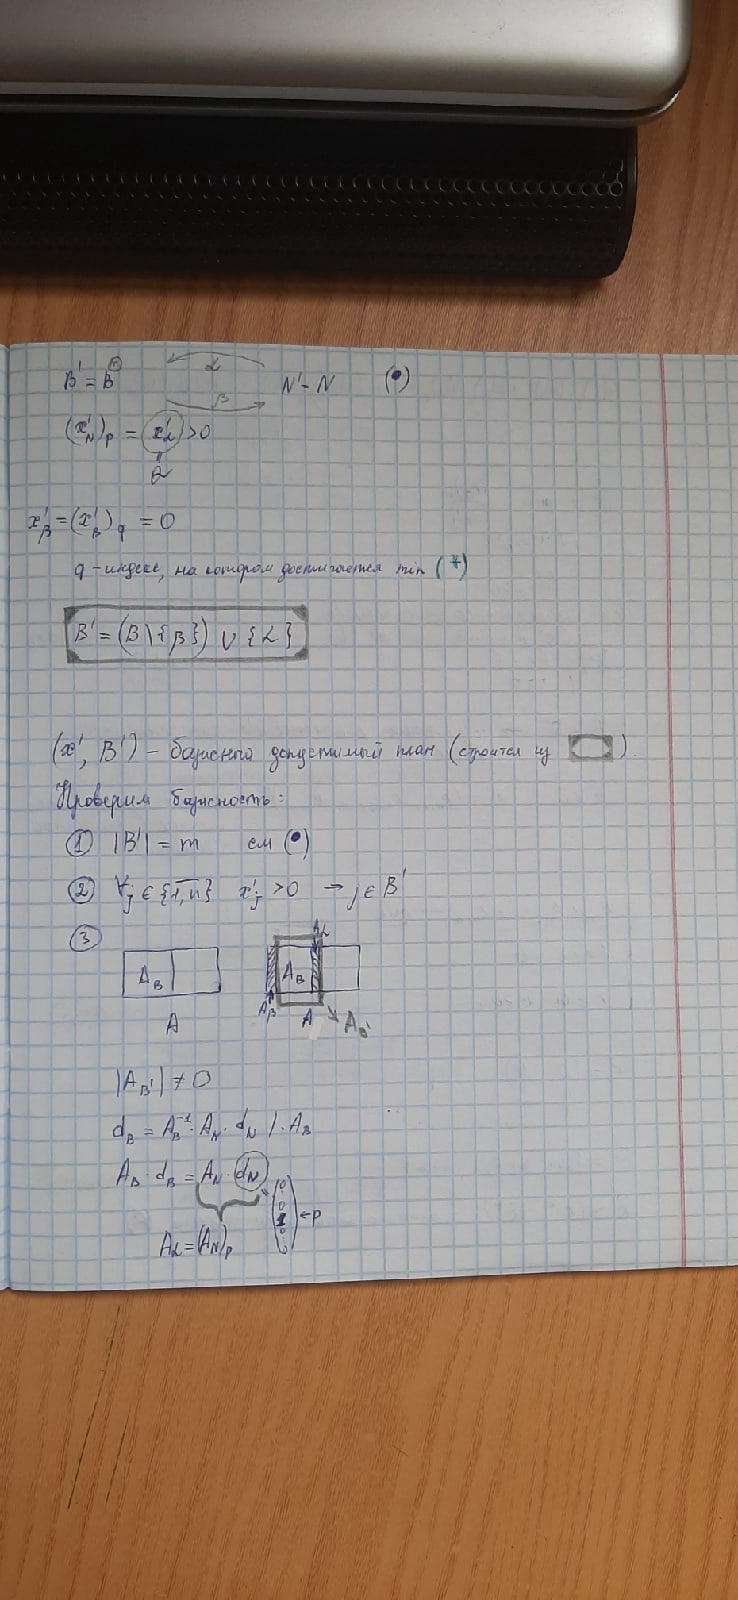 B' = B  α  N' - N  (•)
β
(x'_N)_p = x'_α > 0
x'_β = (x'_B)_q = 0
q - индекс, на котором достигается min (*)
B' = (B \ {β}) ∪ {α}
(x', B') - базисный допустимый план (строится из ▭)
Проверим базисность:
① |B'| = m  см (•)
② ∀j ∈ {1,n}  x'_j > 0 → j ∈ B'
③
A_B  A_B  A_α
A  A_β  A  A_B'
|A_B'| ≠ 0
d_B = A_B^{-1} · A_N · d_N | · A_B
A_B · d_B = A_N · d_N
0 0 1 0 0 ← p
A_α = (A_N)_p